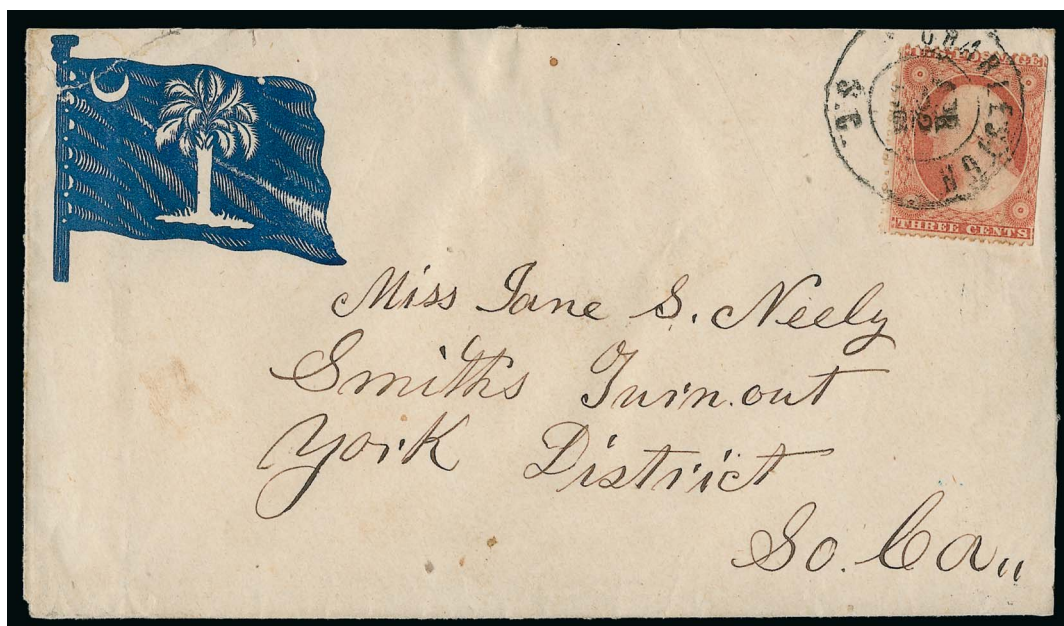 CHARLESTON
S.C.
THREE CENTS
Miss Jane S. Neely
Smiths Turnout
York District
So. Ca,,